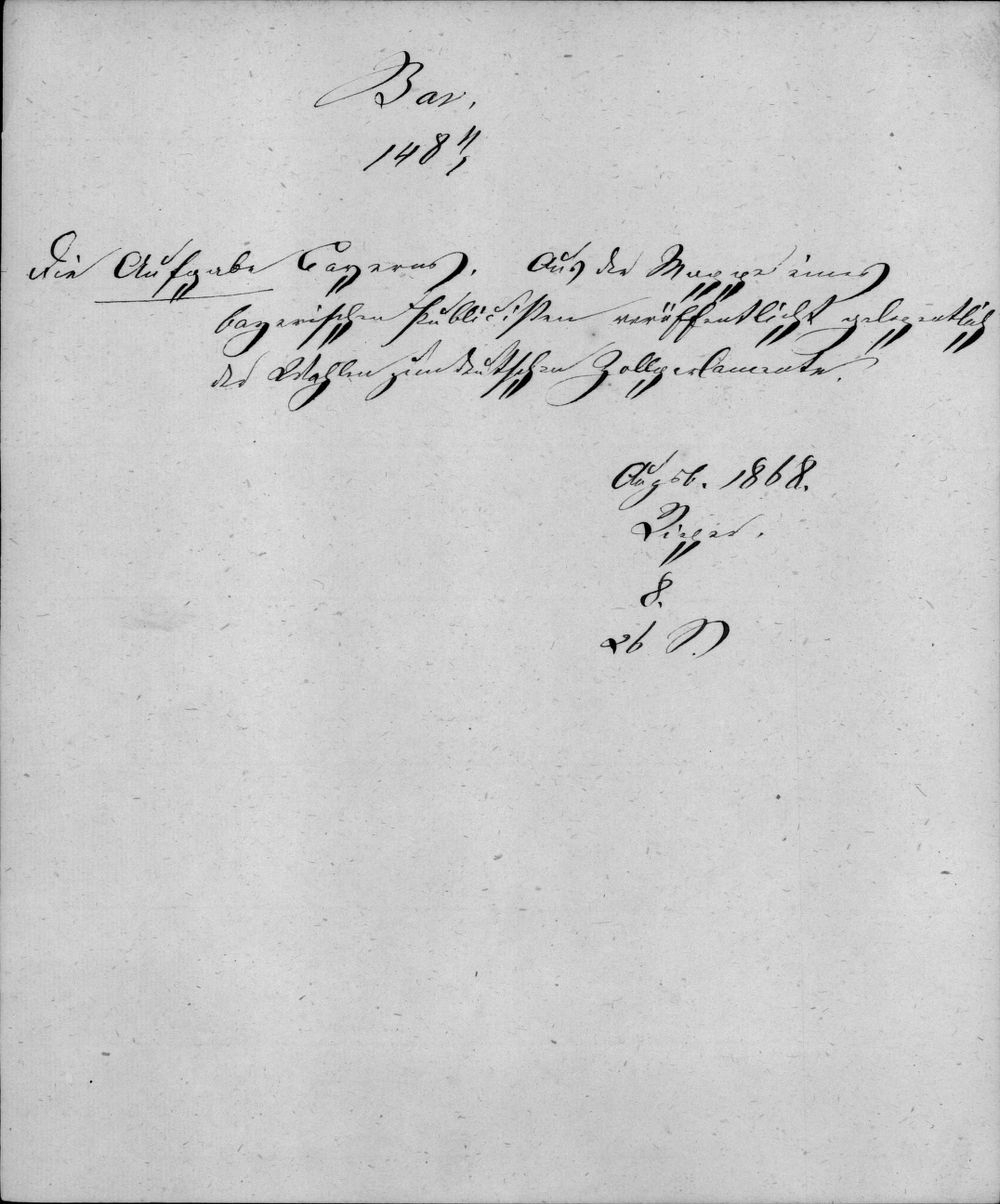 Bav.
148 4,
Die Aufgabe Bayerns. Aus der Mappe eines
bayerischen Publicisten veröffentlicht gelegentlich
der Wahlen zum deutschen Zollparlamente.
Augsb. 1868.
Rieger.
8.
26 S.